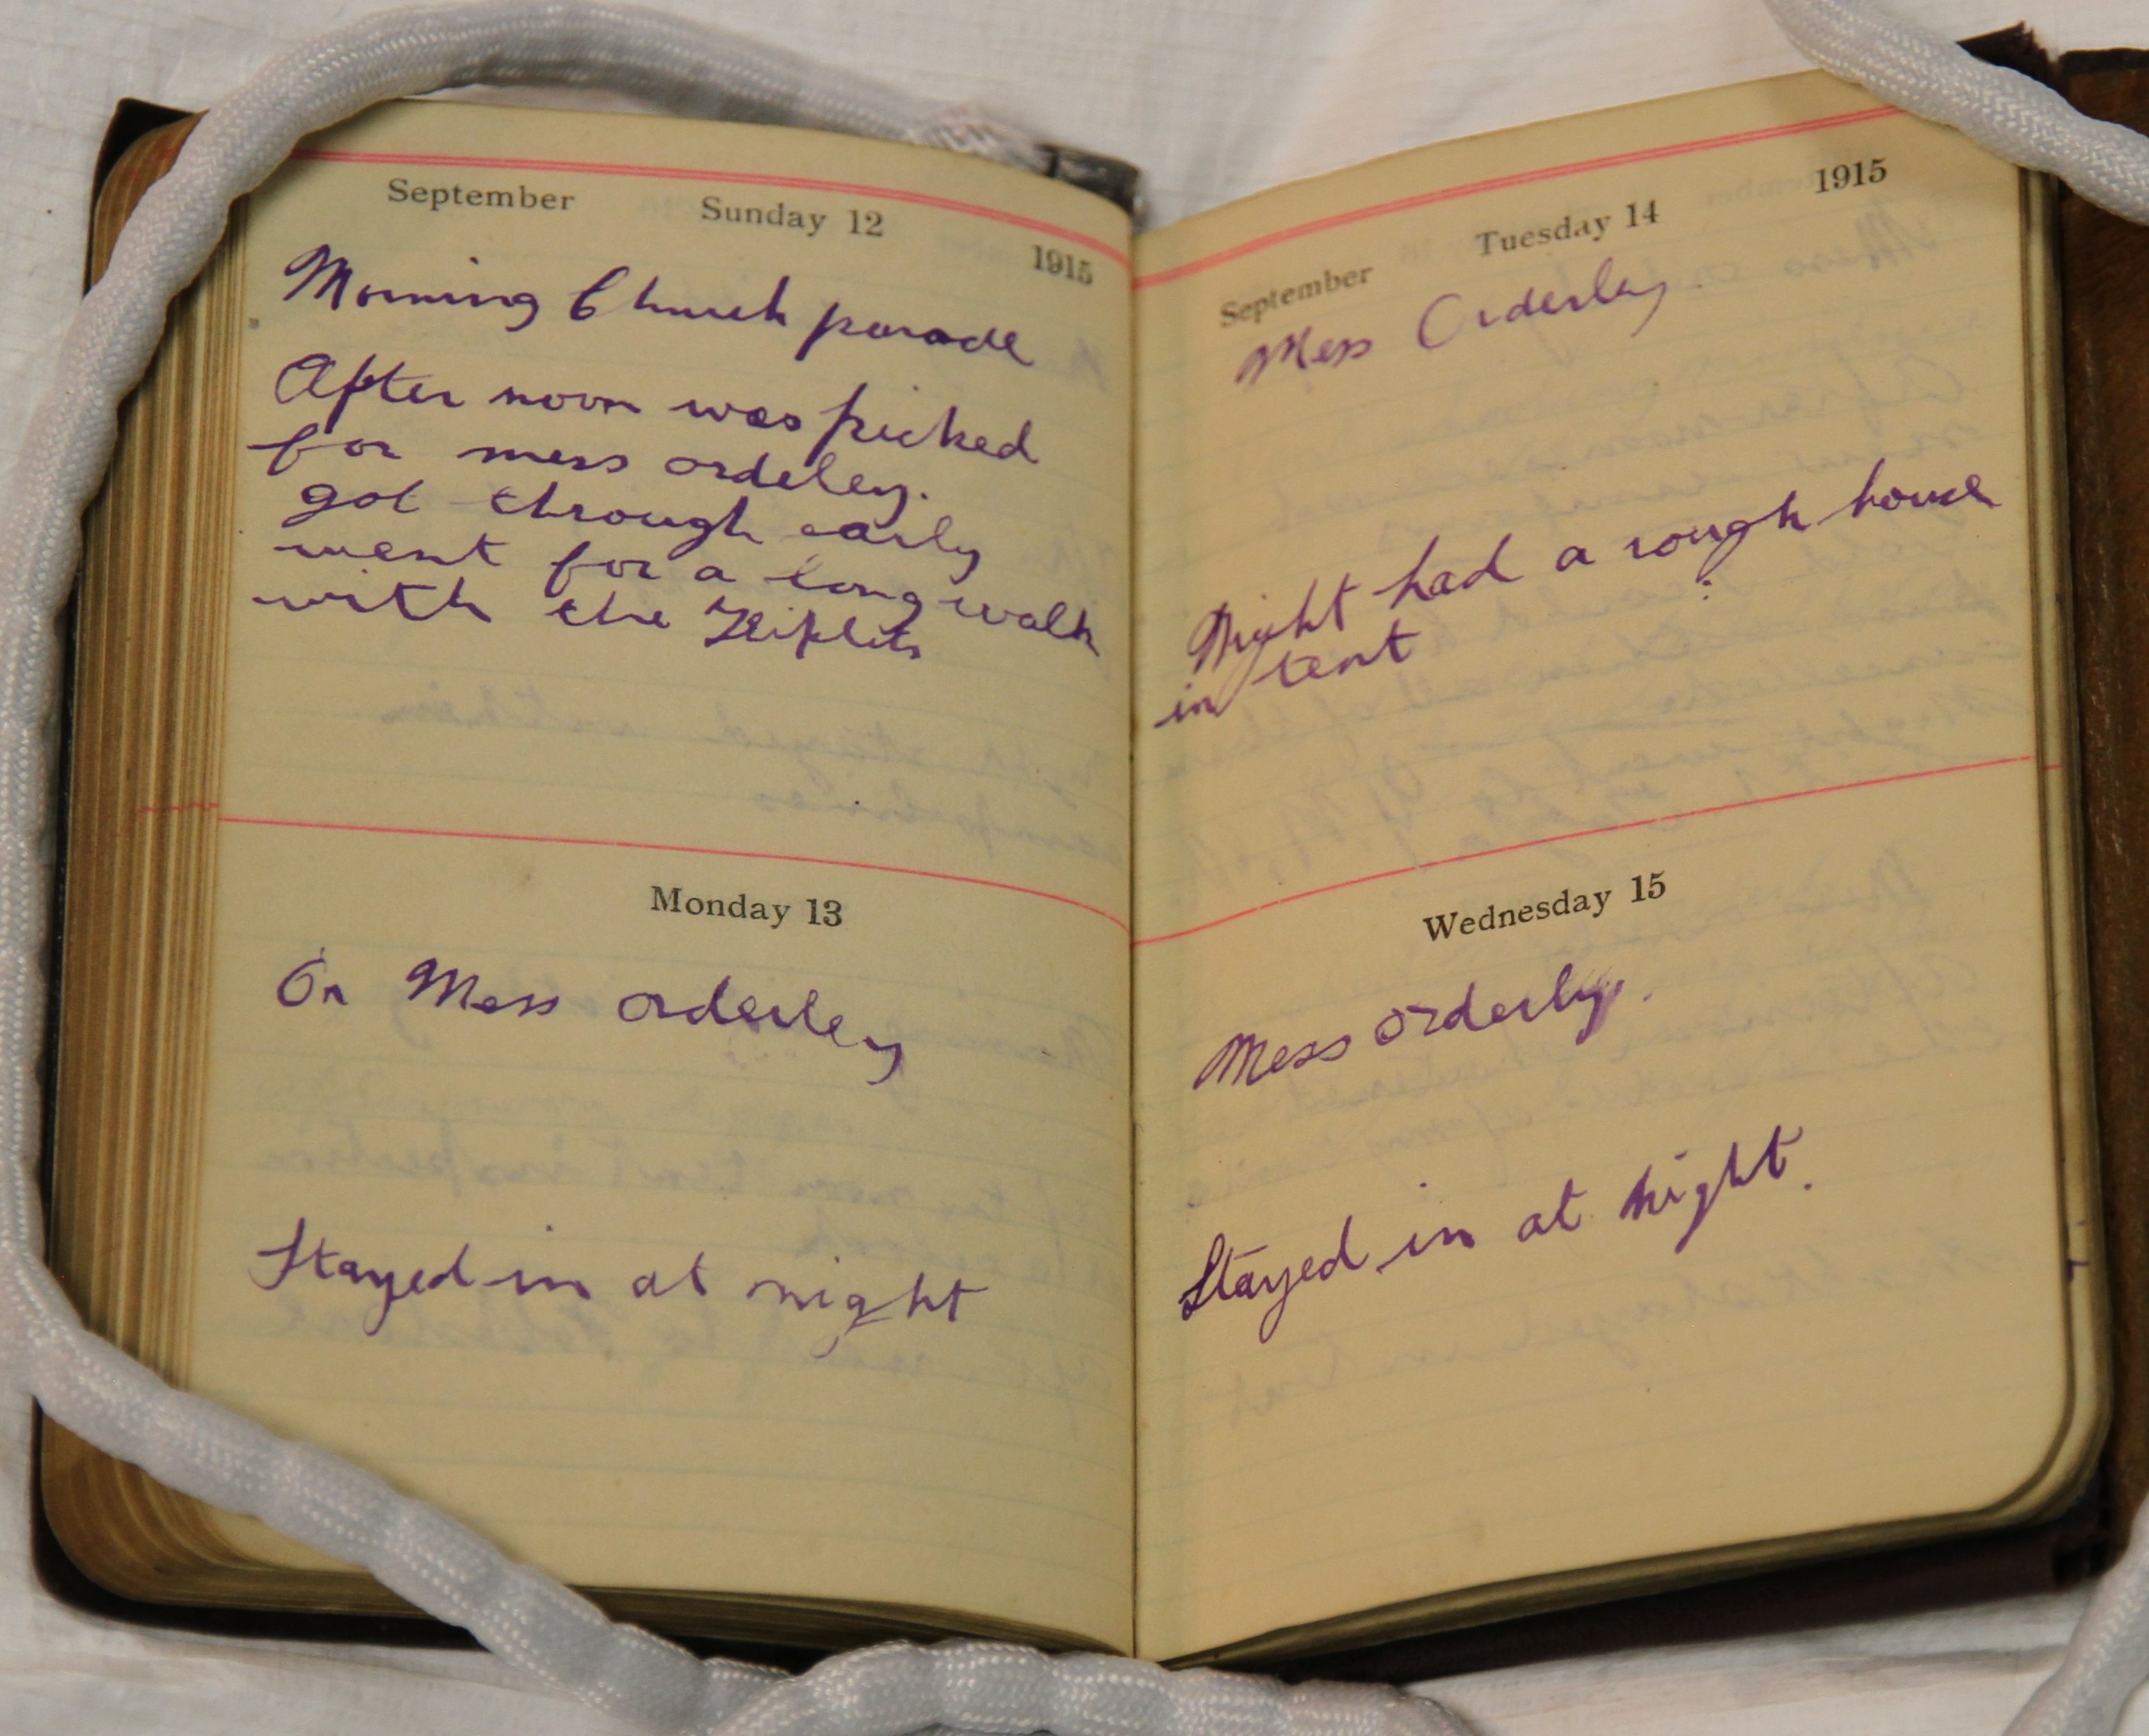 September Sunday 12 1915
Morning Church parade
After noon was picked
for mess ordeley.
got through early
went for a long walk
with the
Monday 13
On Mess orderley
Stayed in at night
September Tuesday 14 1915
Mess Orderley
Night had a rough house
in tent
Wednesday 15
Mess orderly.
Stayed in at night.